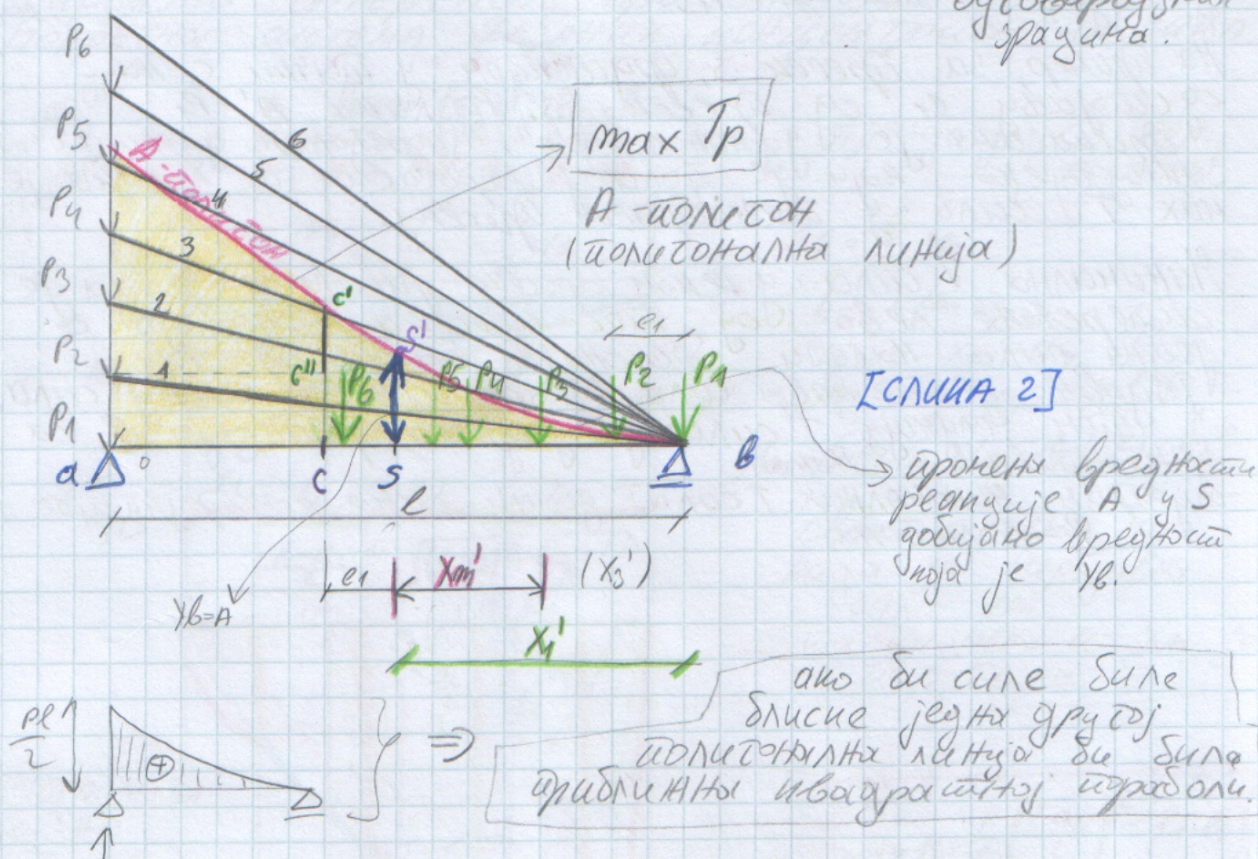 зрацима.
P6
P5
P4
P3
P2
P1
6
5
4
3
2
1
А-полигон
max Tp
А-полигон
(полигонална линија)
c'
s'
c"
e1
P6
P5
P4
P3
P2
P1
[СЛИКА 2]
a
o
c
s
в
l
промена вредности
реакције А у S
добијамо вредност
која је Yв.
e1
Xm'
(X3')
Yв=A
X1'
ако би силе биле
блиске једна другој
полигонална линија би била
приближна квадратној параболи.
pl
2
+
⇒